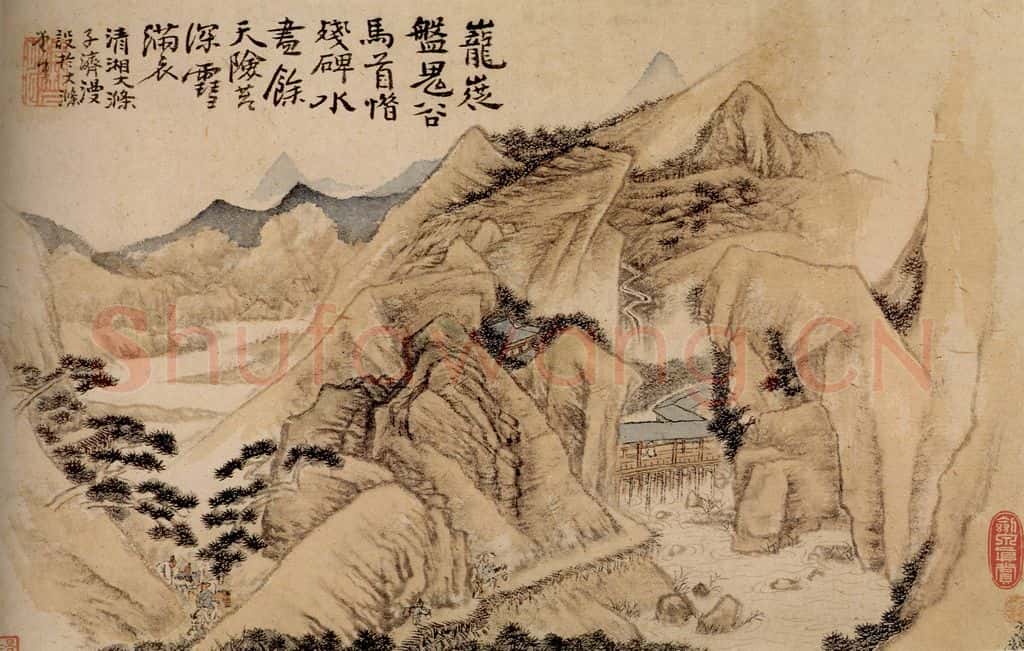 巃嵸
盤鬼谷
馬首惜
殘碑水
餘
天險苔
深
滿衣
清湘大滌
子濟漫
設於大滌
Shufawang.CN